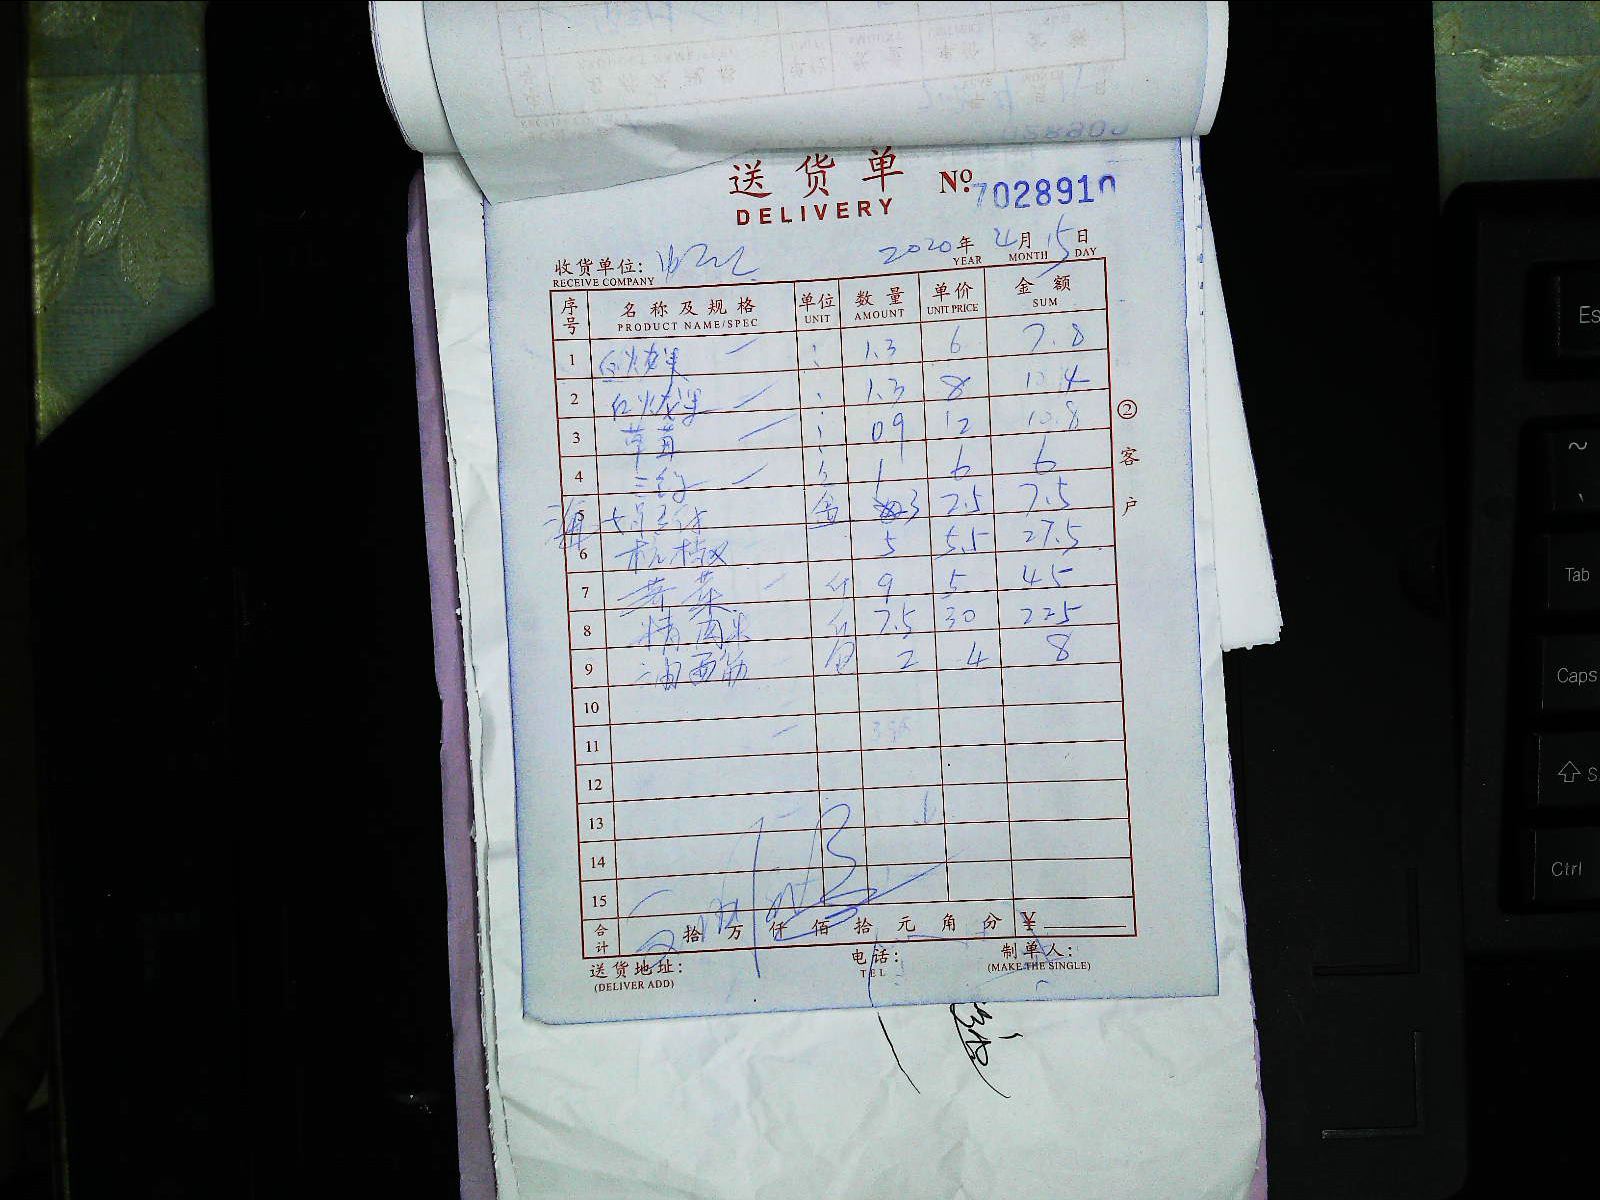 送货单
DELIVERY
No. 7028910
2020年 4月 15日
YEAR MONTH DAY
收货单位:
RECEIVE COMPANY
序号 名称及规格 单位 数量 单价 金额
PRODUCT NAME/SPEC UNIT AMOUNT UNIT PRICE SUM
1 白火龙果 1.3 6 7.8
2 红火龙果 1.3 8 10.4
3 草莓 0.9 12 10.8
4 1 6 6
5 3 2.5 7.5
6 杭椒 5 5.5 27.5
7 9 5 45
8 精肉 7.5 30 225
9 油面筋 2 4 8
10
11
12
13
14
15
合计 拾 万 仟 佰 拾 元 角 分 ¥
送货地址: 电话: 制单人:
(DELIVER ADD) TEL (MAKE THE SINGLE)
②客户
Es
~
Tab
Caps
S
Ctrl